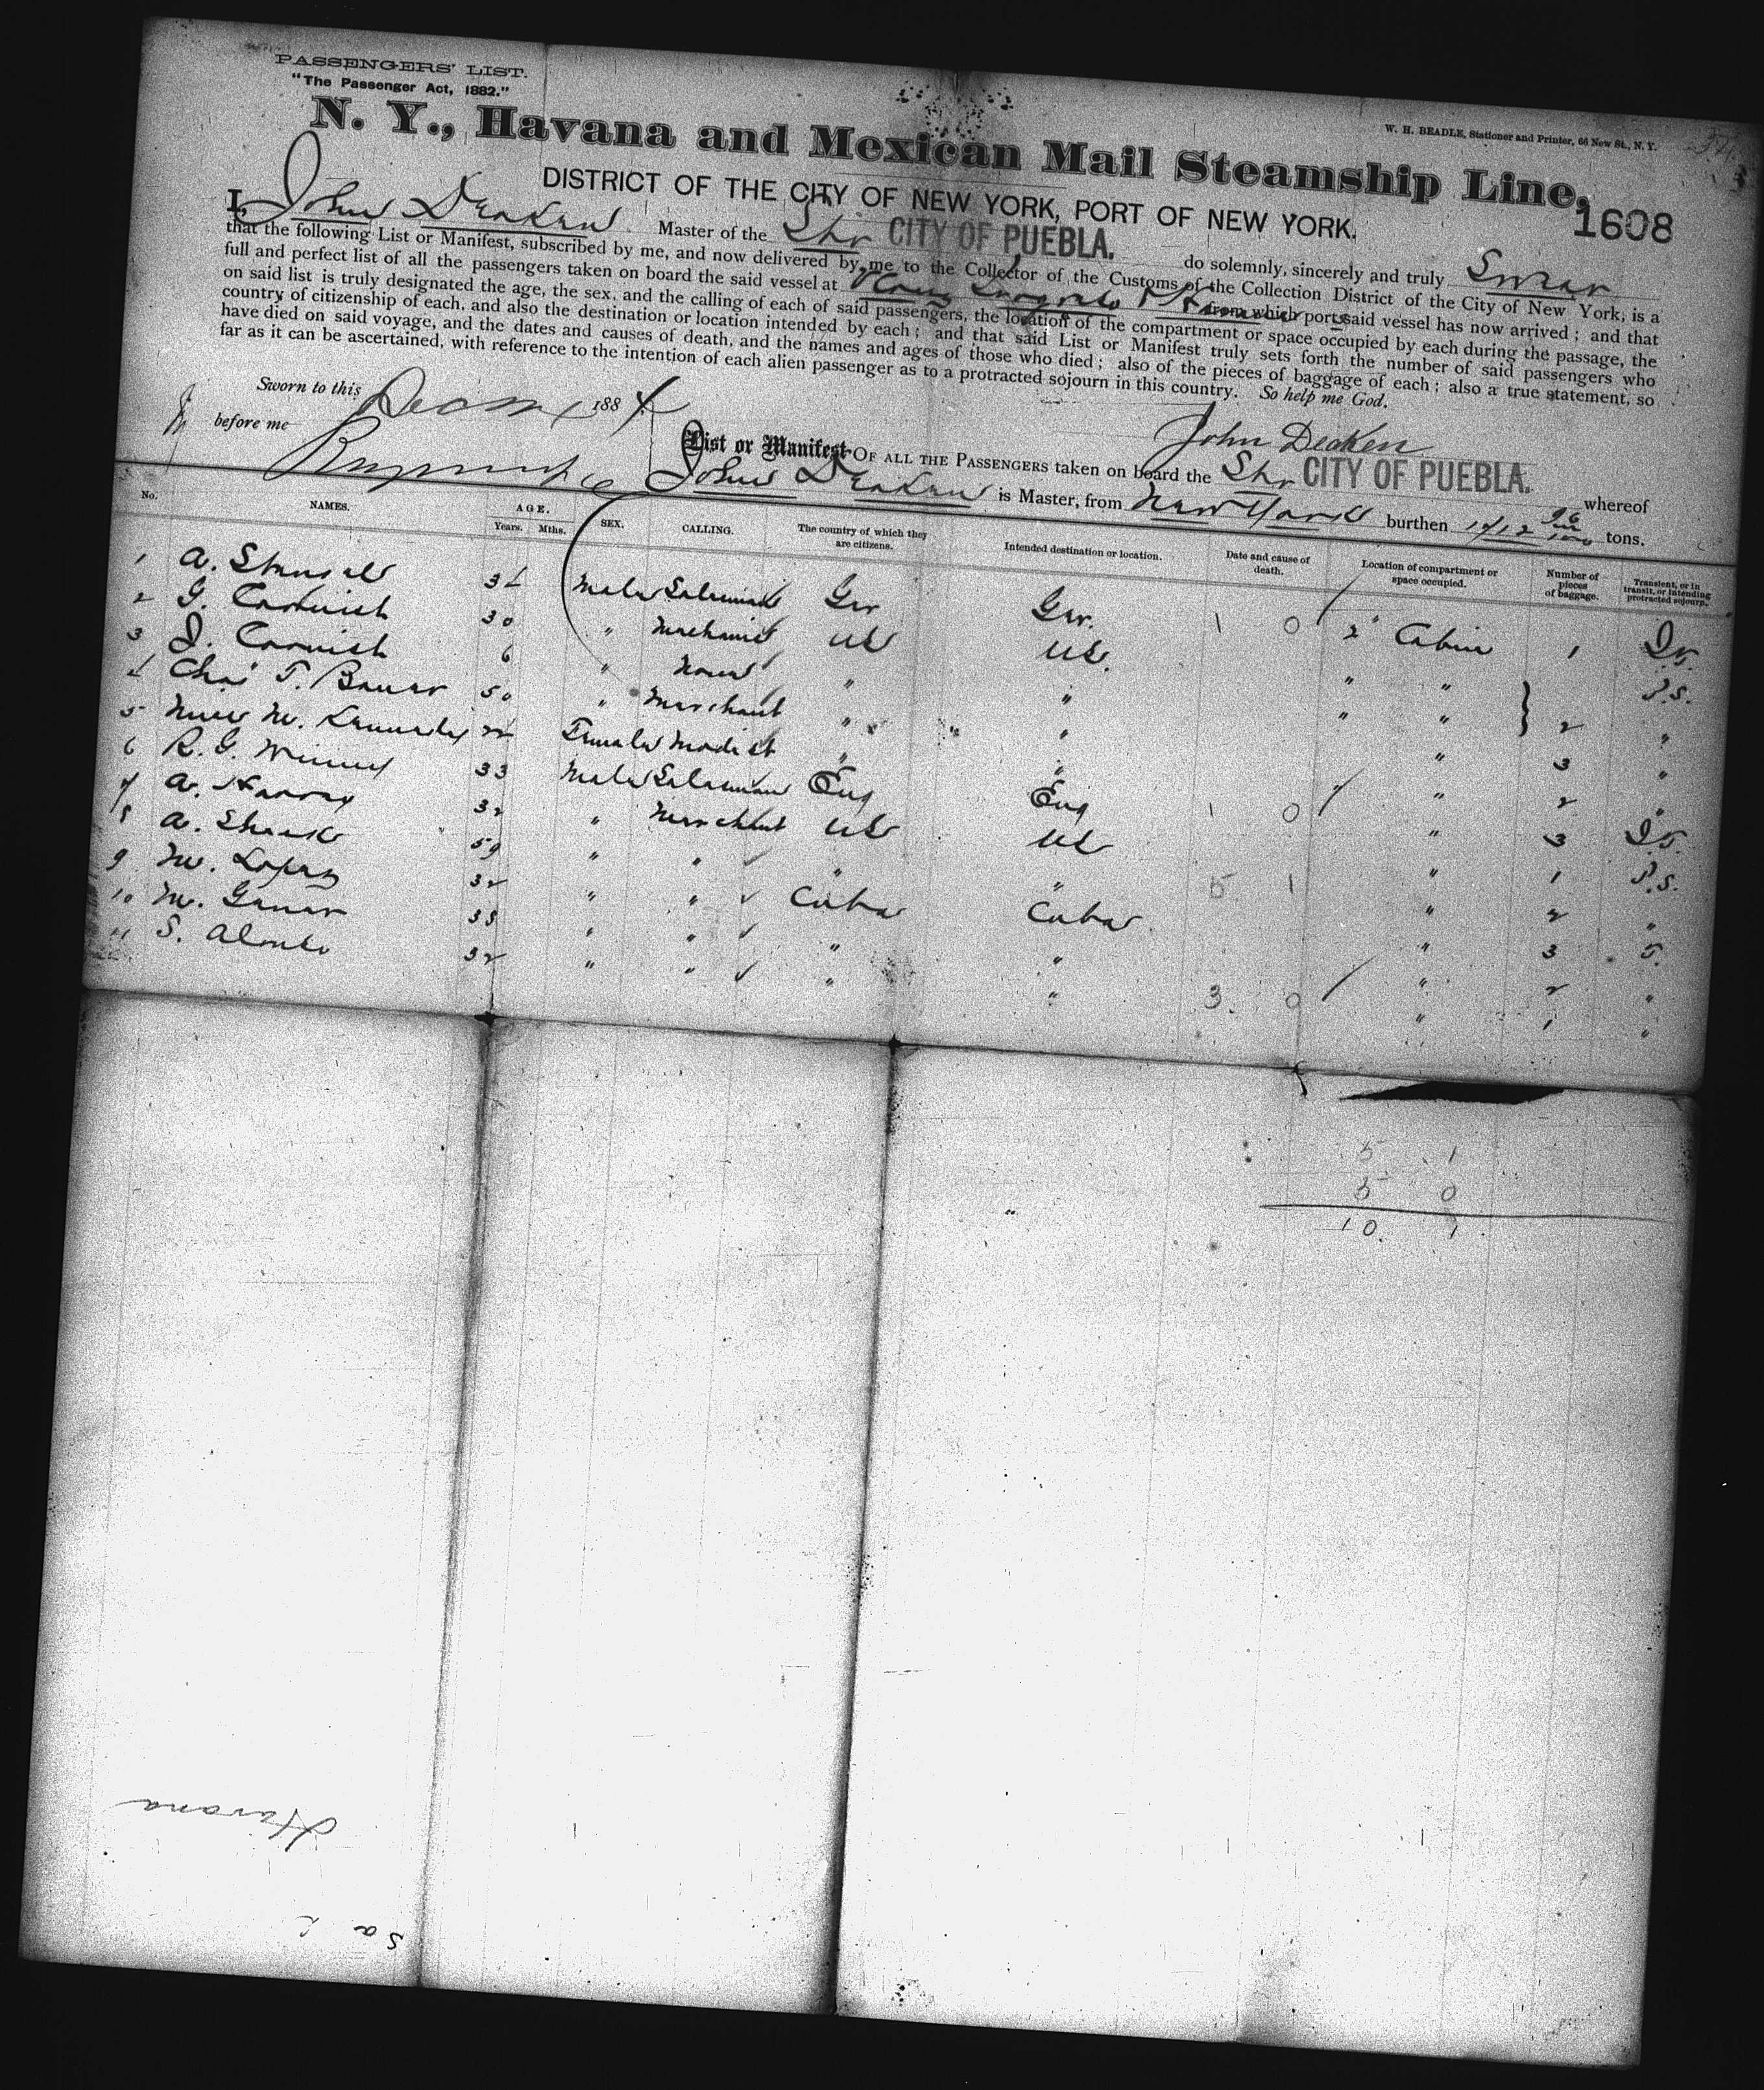 PASSENGERS' LIST.
"The Passenger Act, 1882."
W. H. BEADLE, Stationer and Printer, 66 New St., N. Y.
N. Y., Havana and Mexican Mail Steamship Line,
DISTRICT OF THE CITY OF NEW YORK, PORT OF NEW YORK.
1608
I, John Deaken Master of the Str CITY OF PUEBLA. do solemnly, sincerely and truly Swear
that the following List or Manifest, subscribed by me, and now delivered by me to the Collector of the Customs of the Collection District of the City of New York, is a
full and perfect list of all the passengers taken on board the said vessel at from which ports said vessel has now arrived; and that
on said list is truly designated the age, the sex, and the calling of each of said passengers, the location of the compartment or space occupied by each during the passage, the
country of citizenship of each, and also the destination or location intended by each; and that said List or Manifest truly sets forth the number of said passengers who
have died on said voyage, and the dates and causes of death, and the names and ages of those who died; also of the pieces of baggage of each; also a true statement, so
far as it can be ascertained, with reference to the intention of each alien passenger as to a protracted sojourn in this country. So help me God.
Sworn to this 1884
before me
John Deaken
List or Manifest OF ALL THE PASSENGERS taken on board the Str CITY OF PUEBLA. whereof
John Deaken is Master, from New York burthen tons.
No. NAMES. AGE. Years. Mths. SEX. CALLING. The country of which they are citizens. Intended destination or location. Date and cause of death. Location of compartment or space occupied. Number of pieces of baggage. Transient, or in transit, or intending protracted sojourn.
1 A. Male Salesman Ger Ger. 1 0 Cabin 1
2 G. Cornish 30 " Mechanic US US. " " P.S.
3 J. Cornish 6 " None " " " " 2 "
4 Chas T. 50 " Merchant " " " 3 "
5 M. Kennedy Female Modist " " " " 2 "
6 R. G. 33 Male Salesman Eng Eng 1 0 " 3
7 A. Harvey 32 " Merchant US US " 1 P.S.
8 A. 59 " " " " 5 1 " 2 "
9 M. Lopez 32 " " Cuba Cuba " 3 T.
10 M. 38 " " " " " 2 "
11 S. Alonso 32 " " " " 3. 0 " 1 "
5 1
5 0
10. 1
Havana